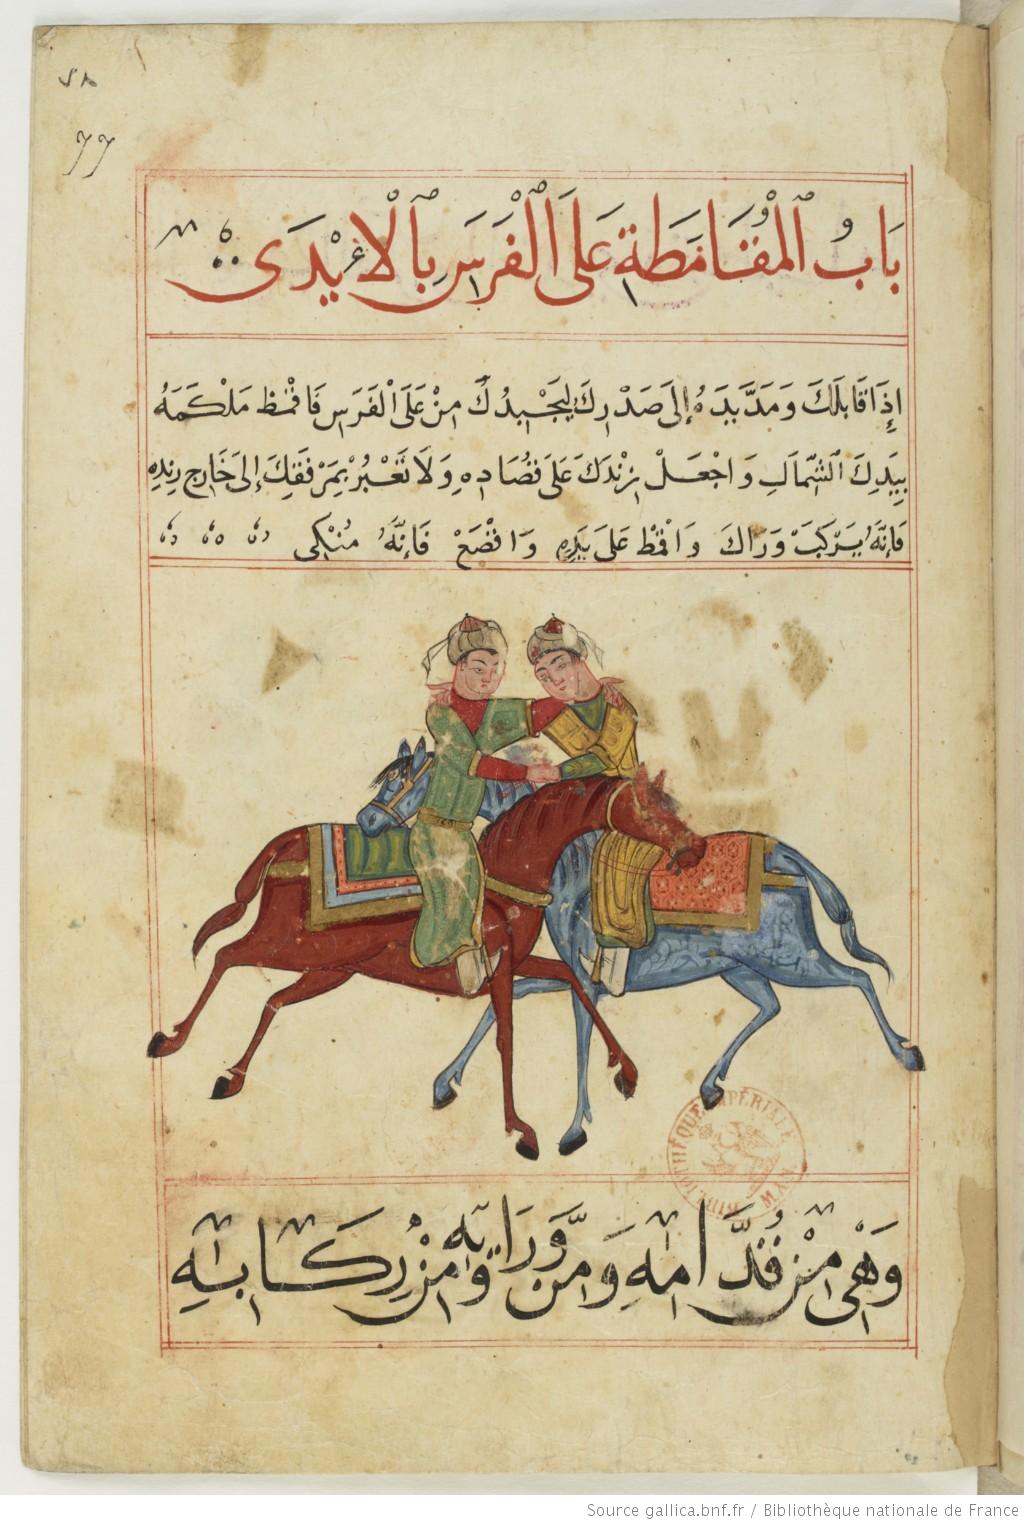 ٧٨
77
بَابُ الْمُقَابَطَةِ عَلَى الْفَرَسِ بِالْأَيْدَى
إِذَا قَابَلَكَ وَمَدَّ يَدَهُ إِلَى صَدْرِكَ لِيَجْبِدُكَ مِنْ عَلَى الْفَرَسِ فَاقْمِط مَلْكَمَهُ
بِيَدِكَ الشِّمَالِ وَاجْعَلْ زِنْدَكَ عَلَى قُصَادِهِ وَلَا تَعْبُرْ بِمَرْفَقِكَ إِلَى خَارِجِ زِنْدِهِ
فَإِنَّهُ يَرْكَبُ وَرَاكَ وَاقْمُطْ عَلَى يَدِهِ وَاقْصَعْ فَإِنَّهُ مُنْكِى
BIBLIOTHÈQUE IMPÉRIALE MAN.
وَهْىَ مِنْ قُدَّامِهِ وَمِنْ وَرَايِهِ وَمِنْ رِكَابِهِ
Source gallica.bnf.fr / Bibliothèque nationale de France